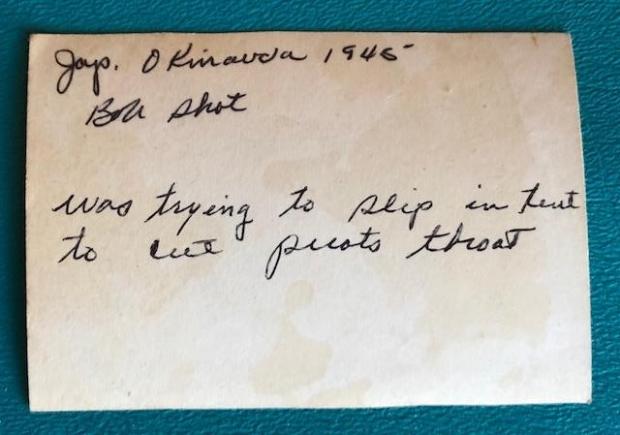 Jap. Okinawa 1945
Bob shot
was trying to slip in tent
to cut pilots throat